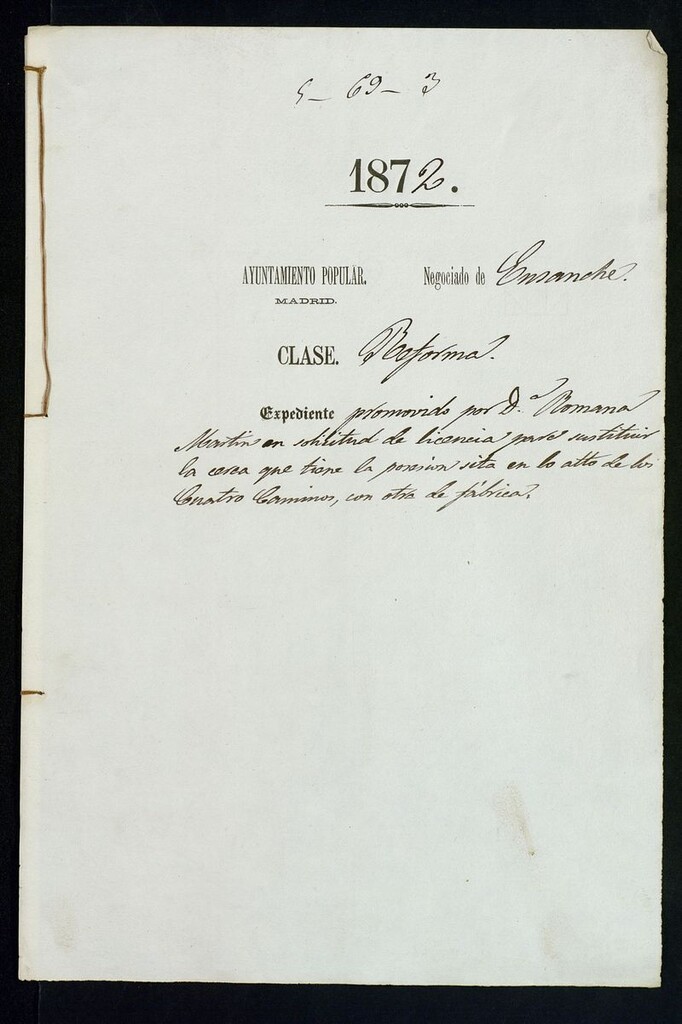 5 - 69 - 3
1872.
AYUNTAMIENTO POPULAR. Negociado de Ensanche.
MADRID.
CLASE. Reforma.
Expediente promovido por D.ª Romana
Martin en solicitud de licencia para sustituir
la cerca que tiene la posesion sita en lo alto de los
Cuatro Caminos, con otra de fábrica.